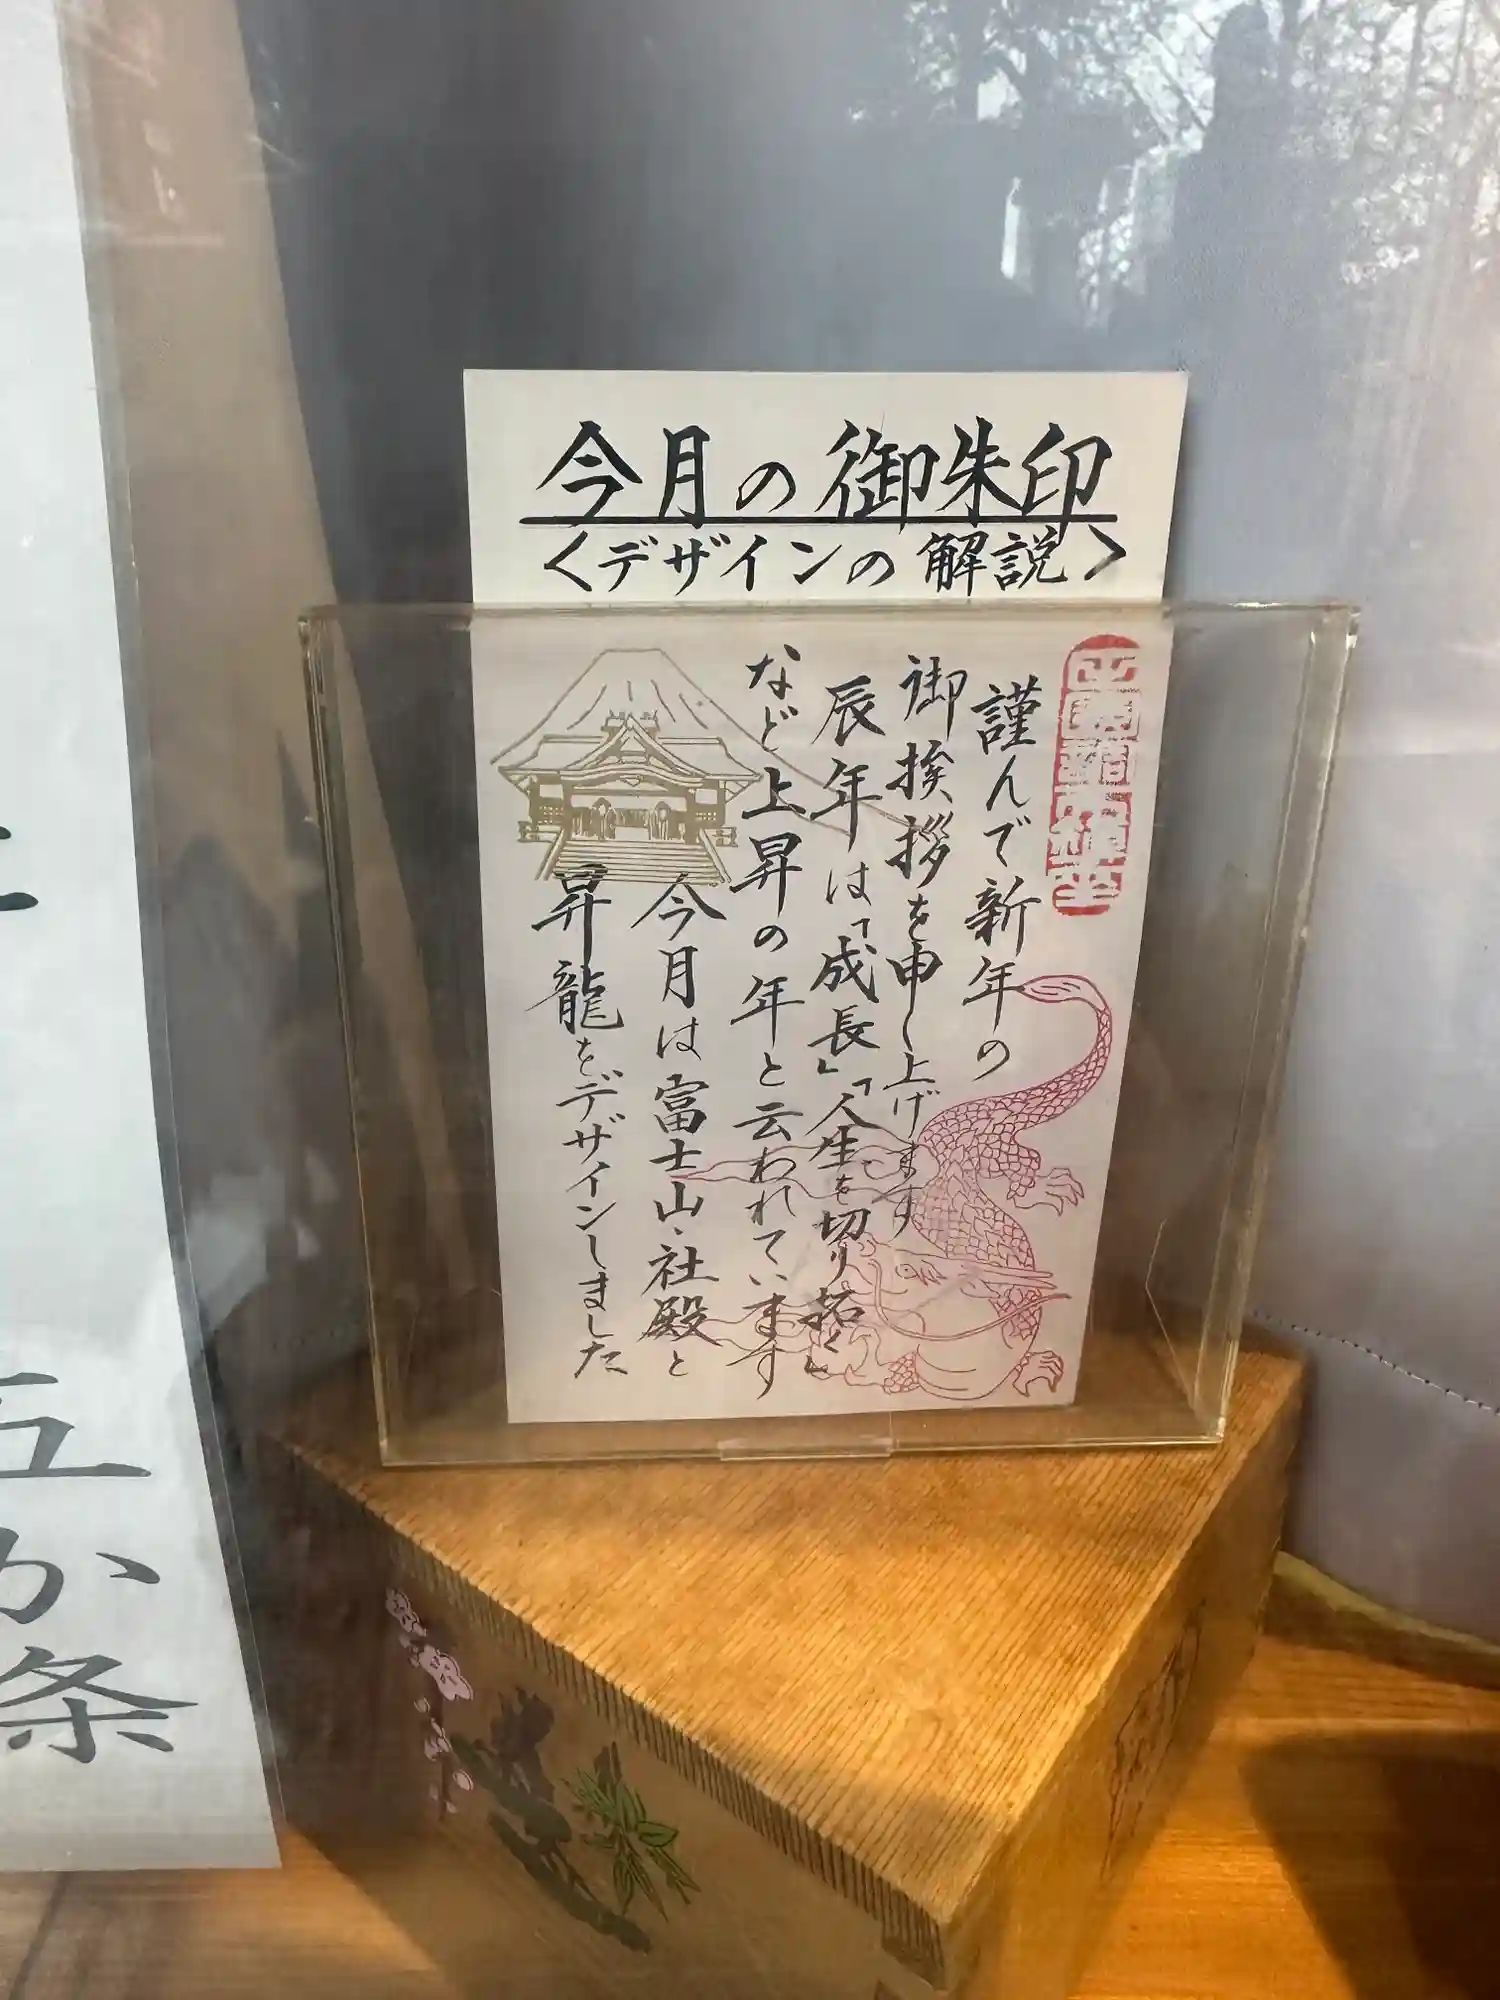 今月の御朱印
<デザインの解説>
謹んで新年の
御挨拶を申し上げます
辰年は「成長」「人生を切り拓く」
など上昇の年と云われています
今月は富士山、社殿と
昇龍をデザインしました
五か条